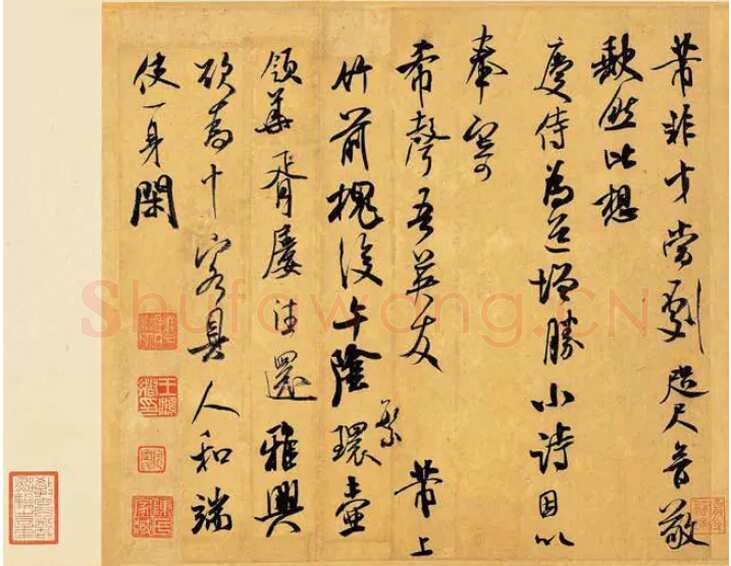 芾非才當劇咫尺音敬
缺然比想
慶侍為道增勝小詩因以
奉寄
希聲吾英友 芾上
竹前槐後午陰環壺
繁
領華胥屢往還雅興
欲為十客具人和端
使一身閑
Shufawang.CN